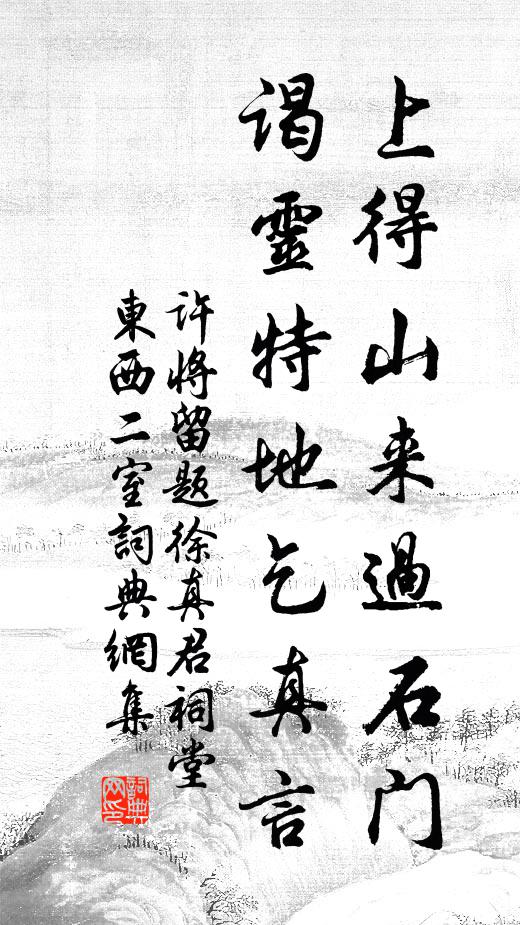 上得山来過石门
谒靈特地乞真言
许将留题徐真君祠堂
東西二室詞典網集
詞典网印